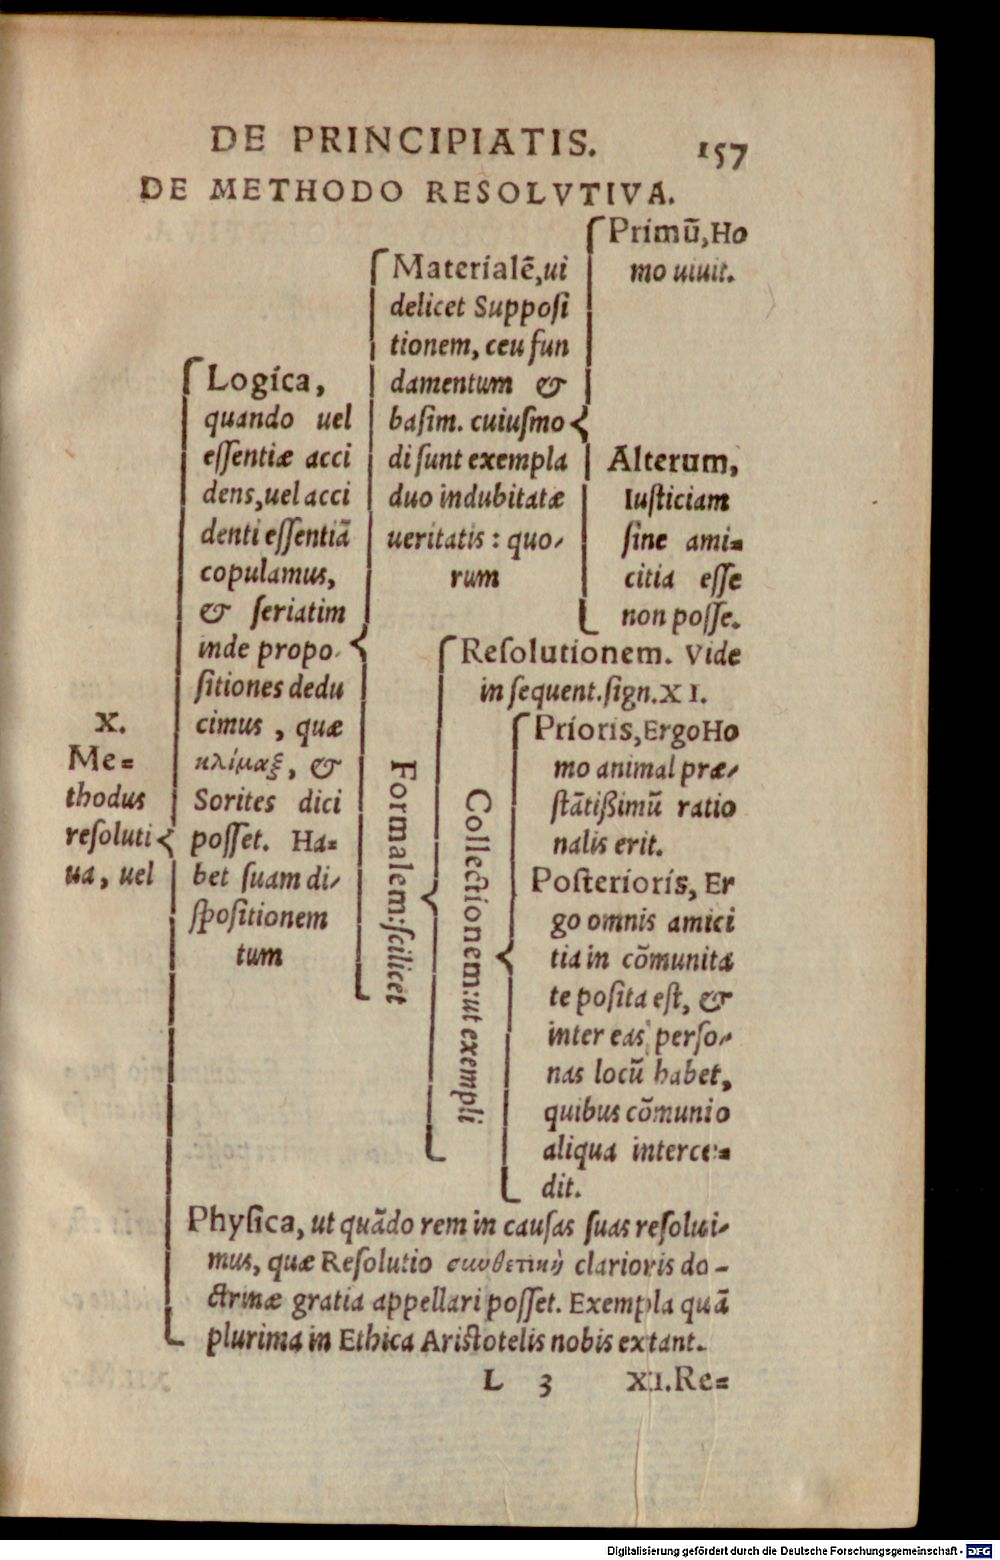 DE PRINCIPIATIS. 157
DE METHODO RESOLVTIVA.
X.
Me=
thodus
resoluti
ua, uel
Logica,
quando uel
essentiæ acci
dens, uel acci
denti essentiā
copulamus,
& seriatim
inde propo-
sitiones dedu
cimus, quæ
κλίμαξ, &
Sorites dici
posset. Ha=
bet suam di-
spositionem
tum
Materialē, ui
delicet Supposi
tionem, ceu fun
damentum &
basim. cuiusmo
di sunt exempla
duo indubitatæ
ueritatis: quo-
rum
Primū, Ho
mo uiuit.
Alterum,
Iusticiam
sine ami=
citia esse
non posse.
Formalem: scilicet
Resolutionem. Vide
in sequent. sign. XI.
Collectionem: ut exempli
Prioris, Ergo Ho
mo animal præ-
stātißimū ratio
nalis erit.
Posterioris, Er
go omnis amici
tia in cōmunita
te posita est, &
inter eas perso-
nas locū habet,
quibus cōmunio
aliqua interce=
dit.
Physica, ut quādo rem in causas suas resolui-
mus, quæ Resolutio συνθετικὴ clarioris do-
ctrinæ gratia appellari posset. Exempla quā
plurima in Ethica Aristotelis nobis extant.
L 3 XI. Re=
Digitalisierung gefördert durch die Deutsche Forschungsgemeinschaft - DFG